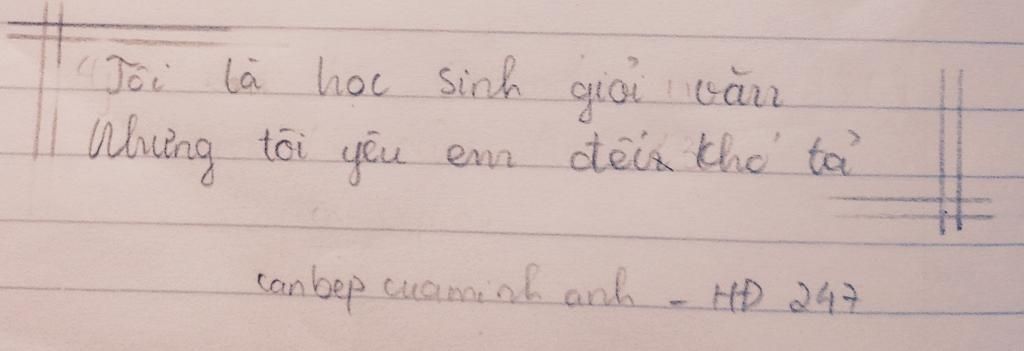 "Tôi là học sinh giỏi văn
Nhưng tôi yêu em đến khó tả
canbep cuaminh anh - HĐ 247